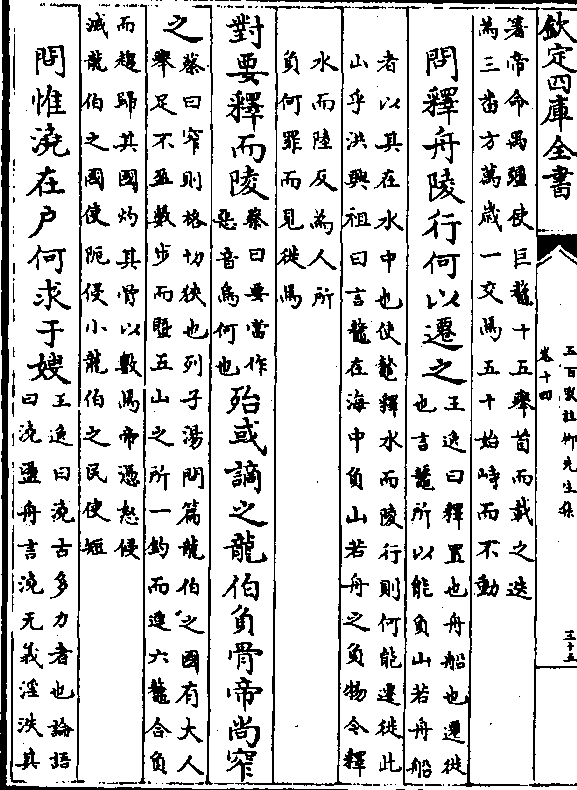 欽定四庫全書
五百家註柳先生集
卷十四
三十五
箸帝命禺彊使巨鼇十五舉首而載之迭
為三畨方萬歲一交焉五十始峙而不動
問釋舟陵行何以遷之
王逸曰釋置也舟船也遷徙
也言鼇所以能負山若舟船
者以其在水中也使鼇釋水而陵行則何能遷徙此
山乎洪興祖曰言鼇在海中負山若舟之負物今釋
水而陸反為人所
負何罪而見徙焉
對要釋而陵
蔡曰要當作
惡音烏何也
殆或謫之龍伯負骨帝尚窄
之
蔡曰窄則格切狹也列子湯問篇龍伯之國有大人
舉足不盈數步而曁五山之所一釣而連六鼇合負
而趨歸其國灼其骨以數焉帝憑怒侵
減龍伯之國使阨侵小龍伯之民使短
問惟澆在户何求于嫂
王逸曰澆古多力者也論語
曰澆盪舟言澆无義淫泆其